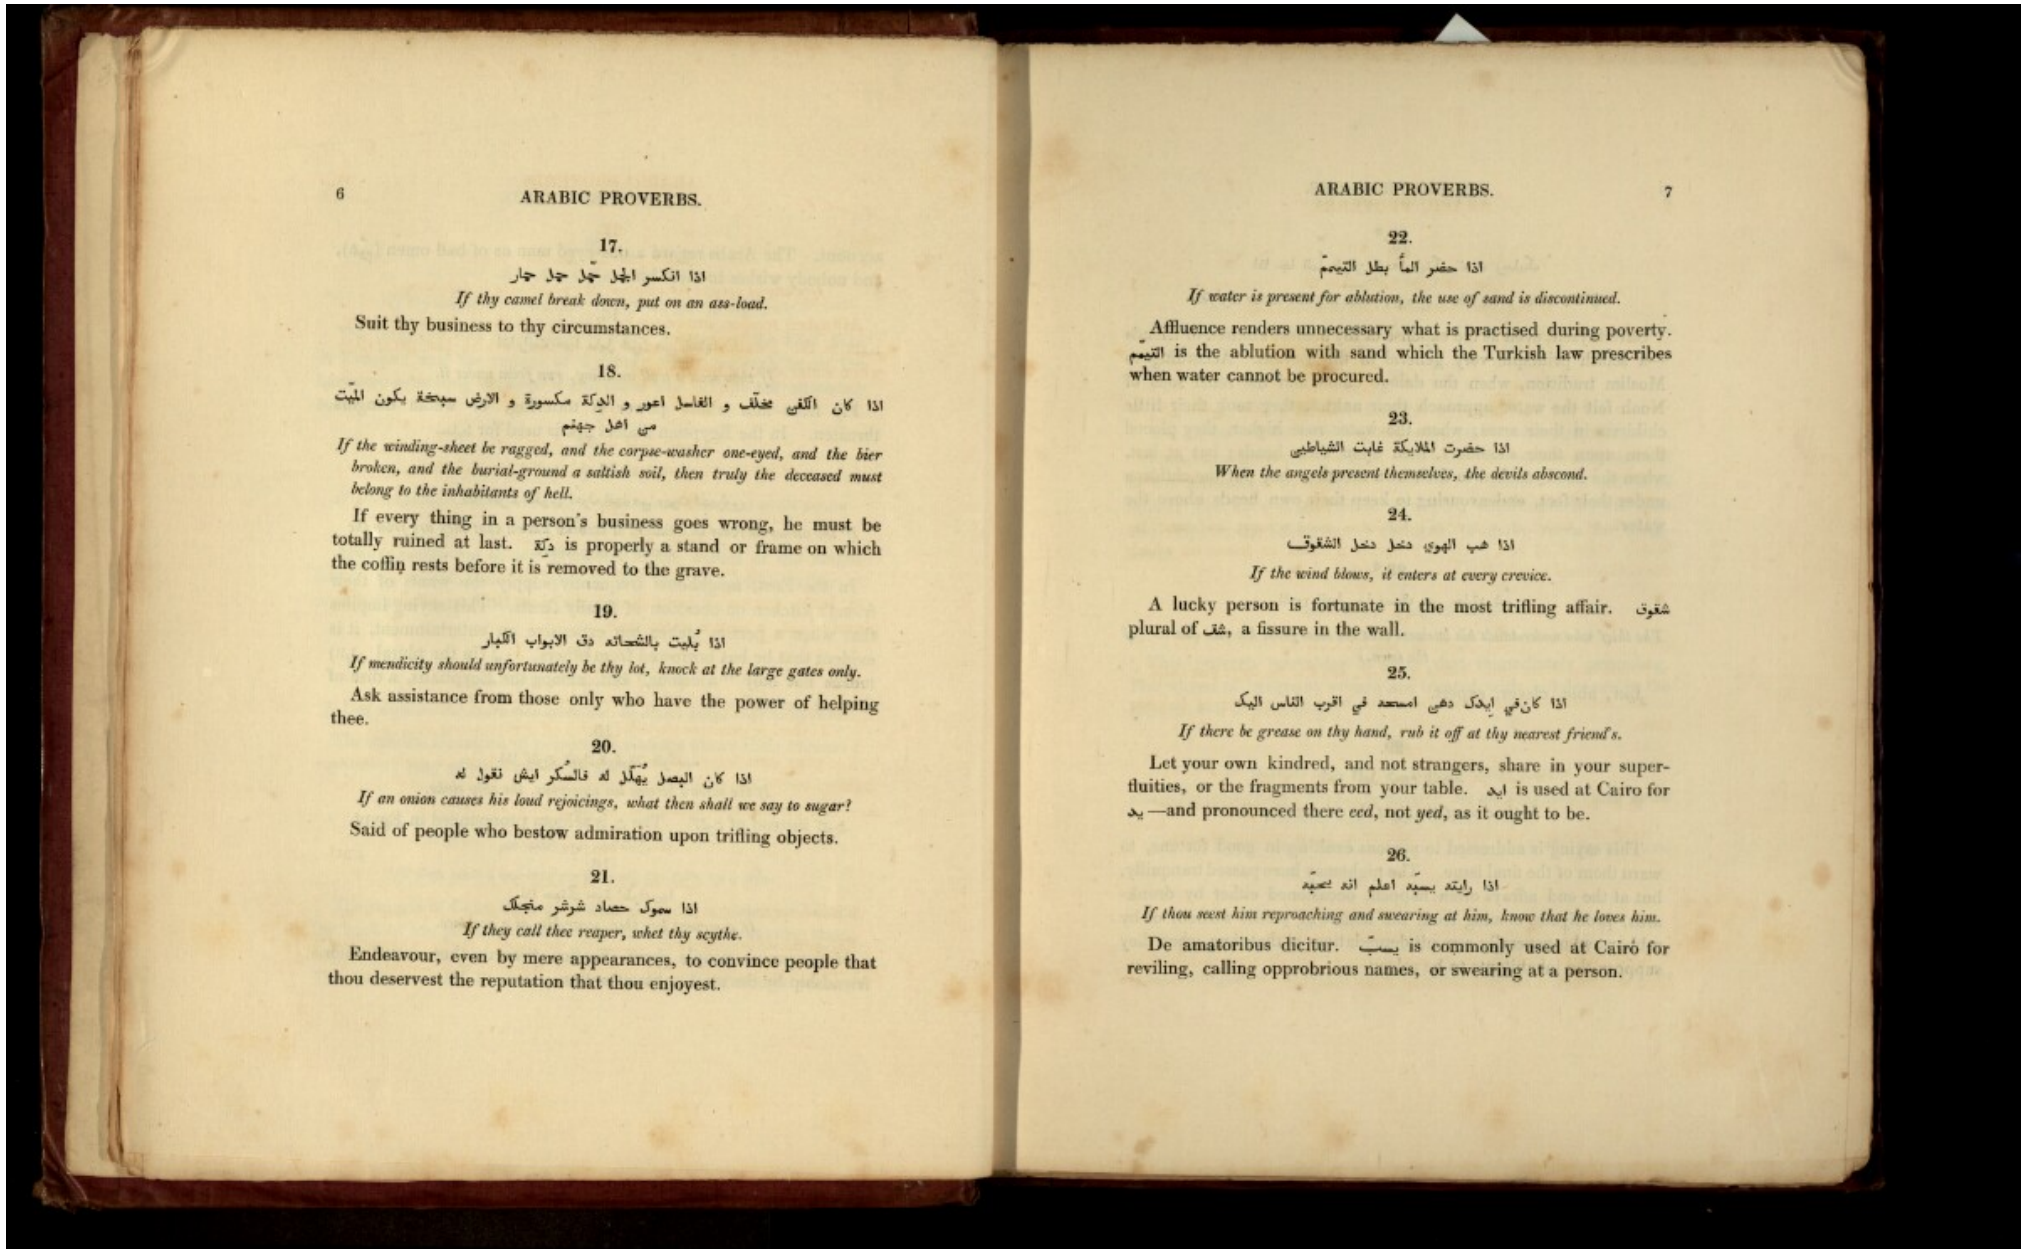 6
ARABIC PROVERBS.
17.
اذا انكسر الجمل حمّل حمل حمار
If thy camel break down, put on an ass-load.
Suit thy business to thy circumstances.
18.
اذا كان الكفن مخلّف و الغاسل اعور و الدِكة مكسورة و الارض سبخة يكون الميّت
من اهل جهنم
If the winding-sheet be ragged, and the corpse-washer one-eyed, and the bier
broken, and the burial-ground a saltish soil, then truly the deceased must
belong to the inhabitants of hell.
If every thing in a person's business goes wrong, he must be
totally ruined at last. دِكة is properly a stand or frame on which
the coffin rests before it is removed to the grave.
19.
اذا بُليت بالشحاته دق الابواب الكبار
If mendicity should unfortunately be thy lot, knock at the large gates only.
Ask assistance from those only who have the power of helping
thee.
20.
اذا كان البصل يُهَلّل له فالسُكر ايش نقول له
If an onion causes his loud rejoicings, what then shall we say to sugar?
Said of people who bestow admiration upon trifling objects.
21.
اذا سموك حصاد شرشر منجلك
If they call thee reaper, whet thy scythe.
Endeavour, even by mere appearances, to convince people that
thou deservest the reputation that thou enjoyest.
ARABIC PROVERBS.
7
22.
اذا حضر المأ بطل التيممّ
If water is present for ablution, the use of sand is discontinued.
Affluence renders unnecessary what is practised during poverty.
التيمّم is the ablution with sand which the Turkish law prescribes
when water cannot be procured.
23.
اذا حضرت الملايكة غابت الشياطين
When the angels present themselves, the devils abscond.
24.
اذا هب الهوي دخل دخل الشقوق
If the wind blows, it enters at every crevice.
A lucky person is fortunate in the most trifling affair. شقوق
plural of شق, a fissure in the wall.
25.
اذا كان في ايدك دهن امسحه في اقرب الناس اليك
If there be grease on thy hand, rub it off at thy nearest friend's.
Let your own kindred, and not strangers, share in your super-
fluities, or the fragments from your table. ايد is used at Cairo for
يد—and pronounced there eed, not yed, as it ought to be.
26.
اذا رايته يسبّه اعلم انه يحبّه
If thou seest him reproaching and swearing at him, know that he loves him.
De amatoribus dicitur. يسبّ is commonly used at Cairo for
reviling, calling opprobrious names, or swearing at a person.